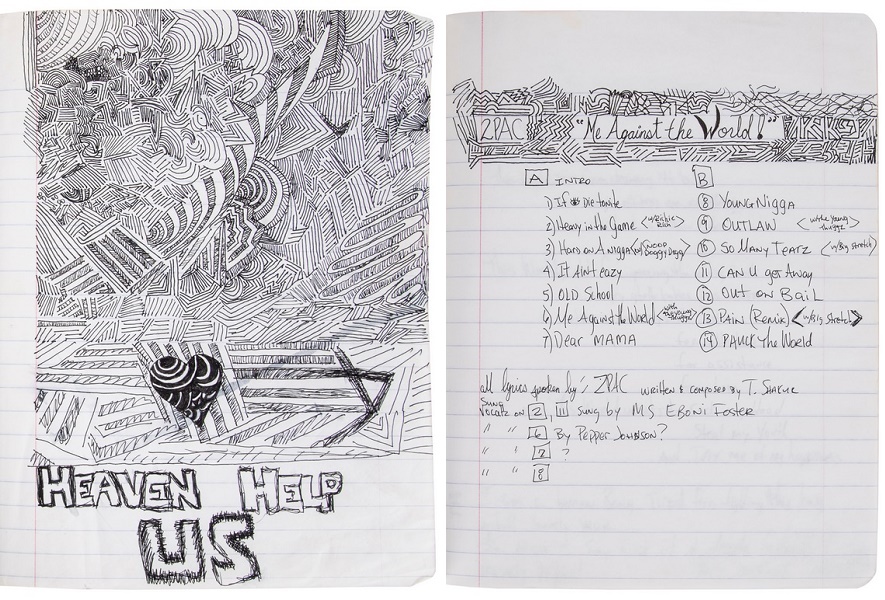 HEAVEN HELP
US
2PAC "Me Against the World!"
A INTRO
1) If Die tonite
2) Heavy in the Game <w/Richie Rich>
3) Hard on A Nigga <w/ SNOOP Doggy Dogg>
4) It Ain't eazy
5) OLD School
6) Me Against the World <with
7) Dear MAMA
B
8 YOUNG Nigga
9 OUTLAW <w/the young thuggz>
10 SO MANY TEARZ <w/Big Stretch>
11 CAN U get Away
12 OUT ON BaiL
13 PAiN (Remix) <w/Big Stretch>
14 PHUCK the World
all lyrics spoken by: 2PAC written & composed by T. SHAKUR
Sung Vocalz on 2, 11 sung by MS. EBONI FOSTER
" " 6 By Pepper Johnson?
" " 7 ?
" " 8